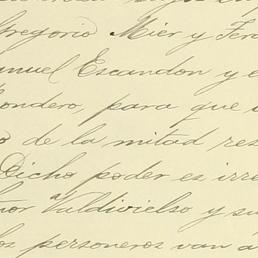 Gregorio Mier y Fer
anuel Escandon y e
ondero, para que
o de la mitad res
Dicho poder es irre
nor Valdivielso y su
los personeros van a